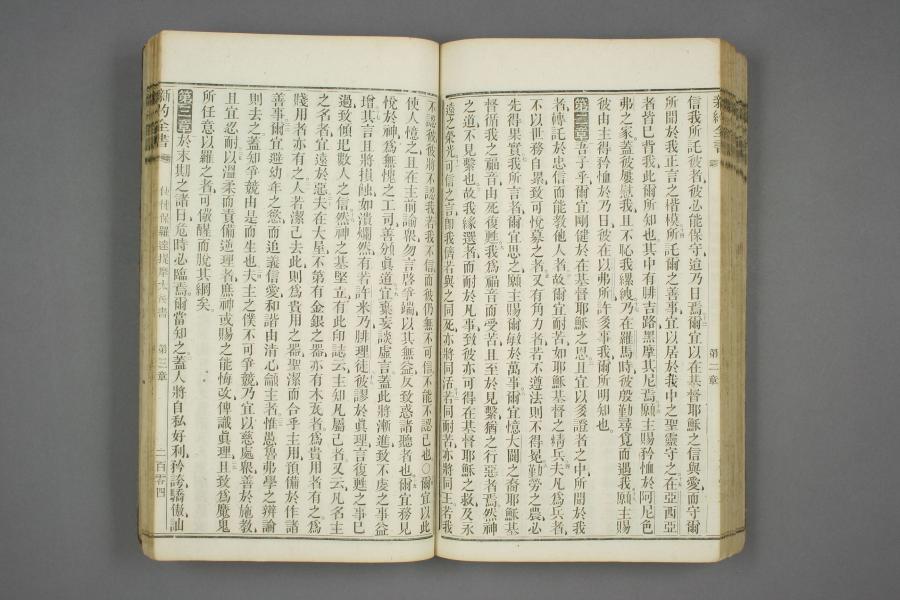 新約全書
第二章
信我所託彼者彼必能保守迨乃日焉爾宜以在基督耶穌之信與愛而守爾
所聞於我正言之楷模所託爾之善事宜以居於我中之聖靈守之在亞西亞
者皆已背我此爾所知也其中有腓吉路黑摩其尼焉願主賜矜恤於阿尼色
弗之家蓋彼屢慰我且不恥我縲絏乃在羅馬時彼殷勤尋覓而遇我願主賜
彼由主得矜恤於乃日彼在以弗所許多事我爾所明知也
第二章吾子乎爾宜剛健於在基督耶穌之恩且宜以多證者之中所聞於我
者轉託於忠信而能教他人者故爾宜耐苦如耶穌基督之精兵夫凡為兵者
不以世務自累致可悅募之者又有角力者若不遵法則不得冕勤勞之農必
先得果實我所言者爾宜思之願主賜爾敏於萬事爾宜憶大闢之裔耶穌基
督循我之福音由死復甦我為福音而受苦且至於見繫猶之行惡者焉然神
之道不見繫也故我緣選者而耐於凡事致彼亦可得在基督耶穌之救及永
遠之榮光可信之言即我儕若與之同死亦將同活若同耐苦亦將同王若我
不認彼彼將不認我若我不信而彼仍無不可信不能不認己也○爾宜以此
使人憶之且在主前諭衆勿言啓爭端以其無益反致惑諸聽者也爾宜務見
悅於神為無愧之工司善剖眞道宜棄妄談虛言蓋此將漸進致不虔之事益
增其言且將損蝕如潰爛然有若許米乃腓理徒彼謬於眞理言復甦之事已
過致傾圮數人之信然神之基堅立有此印誌云主知凡屬己者又云凡名主
之名者宜遠於惡夫在大屋不第有金銀之器亦有木瓦者為貴用者有之為
賤用者亦有之人若潔己去此則為貴用之器聖潔而合乎主用預備於作諸
善事爾宜避幼年之慾而追義信愛和諧由清心龥主者惟愚魯弗學之辯論
則去之蓋知爭競由是而生也夫主之僕不可爭競乃宜以慈處衆善於施教
且宜忍耐以溫柔而責備逆理者庶神或賜之能悔改俾識眞理且致為魔鬼
所任意以羅之者可儆醒而脫其網矣
第三章於末期之諸日危時必臨焉爾當知之蓋人將自私好利矜誇驕傲訕
新約全書
使徒保羅達提摩太後書
第三章
二百零四